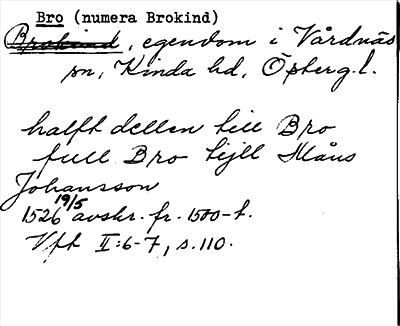 Bro (numera Brokind)
Brokind, egendom i Vårdnäs
sn, Kinda hd, Östergl.
halft dellen till Bro
full Bro tijll Måns
Johansson
1526 19/5 avskr. fr. 1500-t.
Vfl II:6-7, s.110.